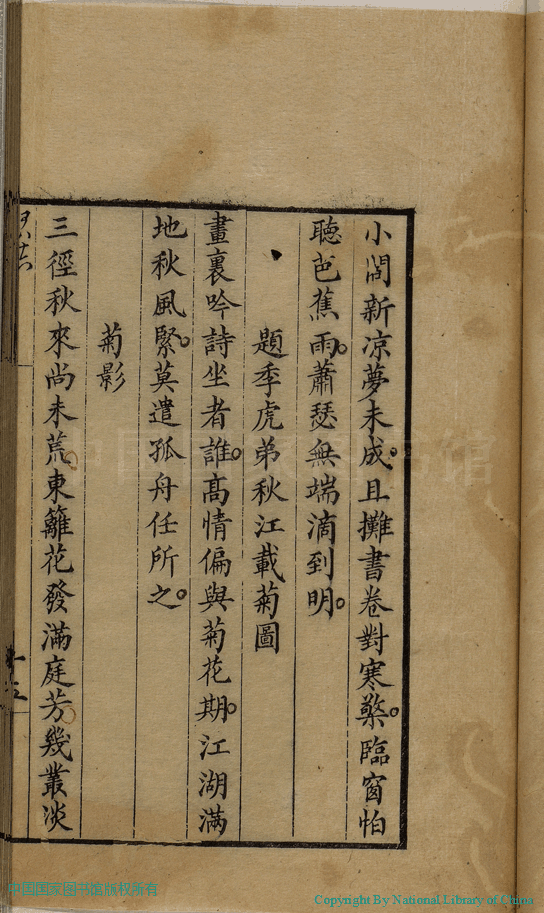 小閣新凉夢未成。且攤書卷對寒檠。臨窗怕
聽芭蕉雨。蕭瑟無端滴到明。
題季虎弟秋江載菊圖
畫裏吟詩坐者誰。高情偏與菊花期。江湖滿
地秋風緊。莫遣孤舟任所之。
菊影
三徑秋來尚未荒。東籬花發滿庭芳。幾叢淡
中国国家图书馆版权所有
Copyright By National Library of China